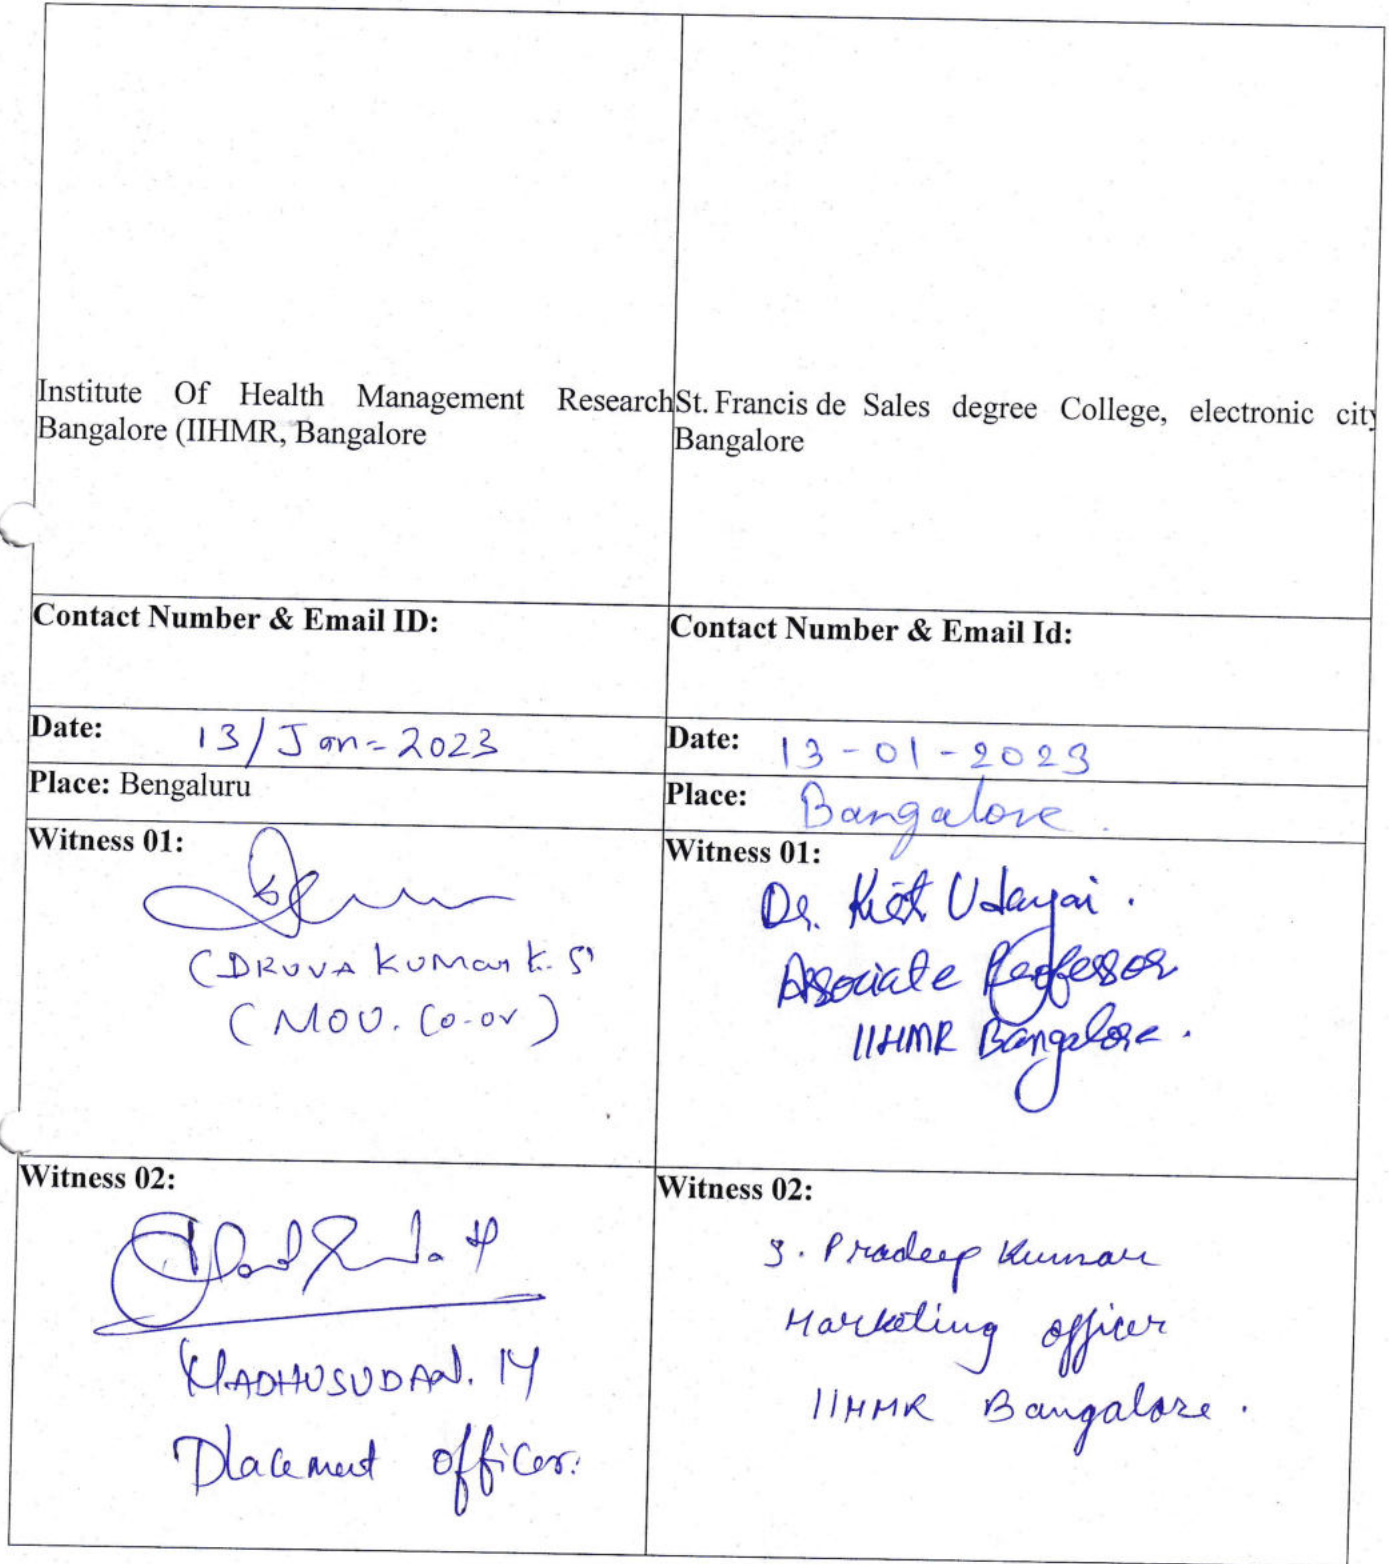 Institute Of Health Management Research
Bangalore (IIHMR, Bangalore
St. Francis de Sales degree College, electronic city
Bangalore
Contact Number & Email ID:
Contact Number & Email Id:
Date: 13/Jan-2023
Date: 13-01-2023
Place: Bengaluru
Place: Bangalore.
Witness 01:
(DRUVA KUMAR K.S)
(MOU. Co-or)
Witness 01:
Dr. Udayai.
Associate Professor
IIHMR Bangalore.
Witness 02:
MADHUSUDAN. M
Placement officer.
Witness 02:
S. Pradeep Kumar
Marketing officer
IIHMR Bangalore.